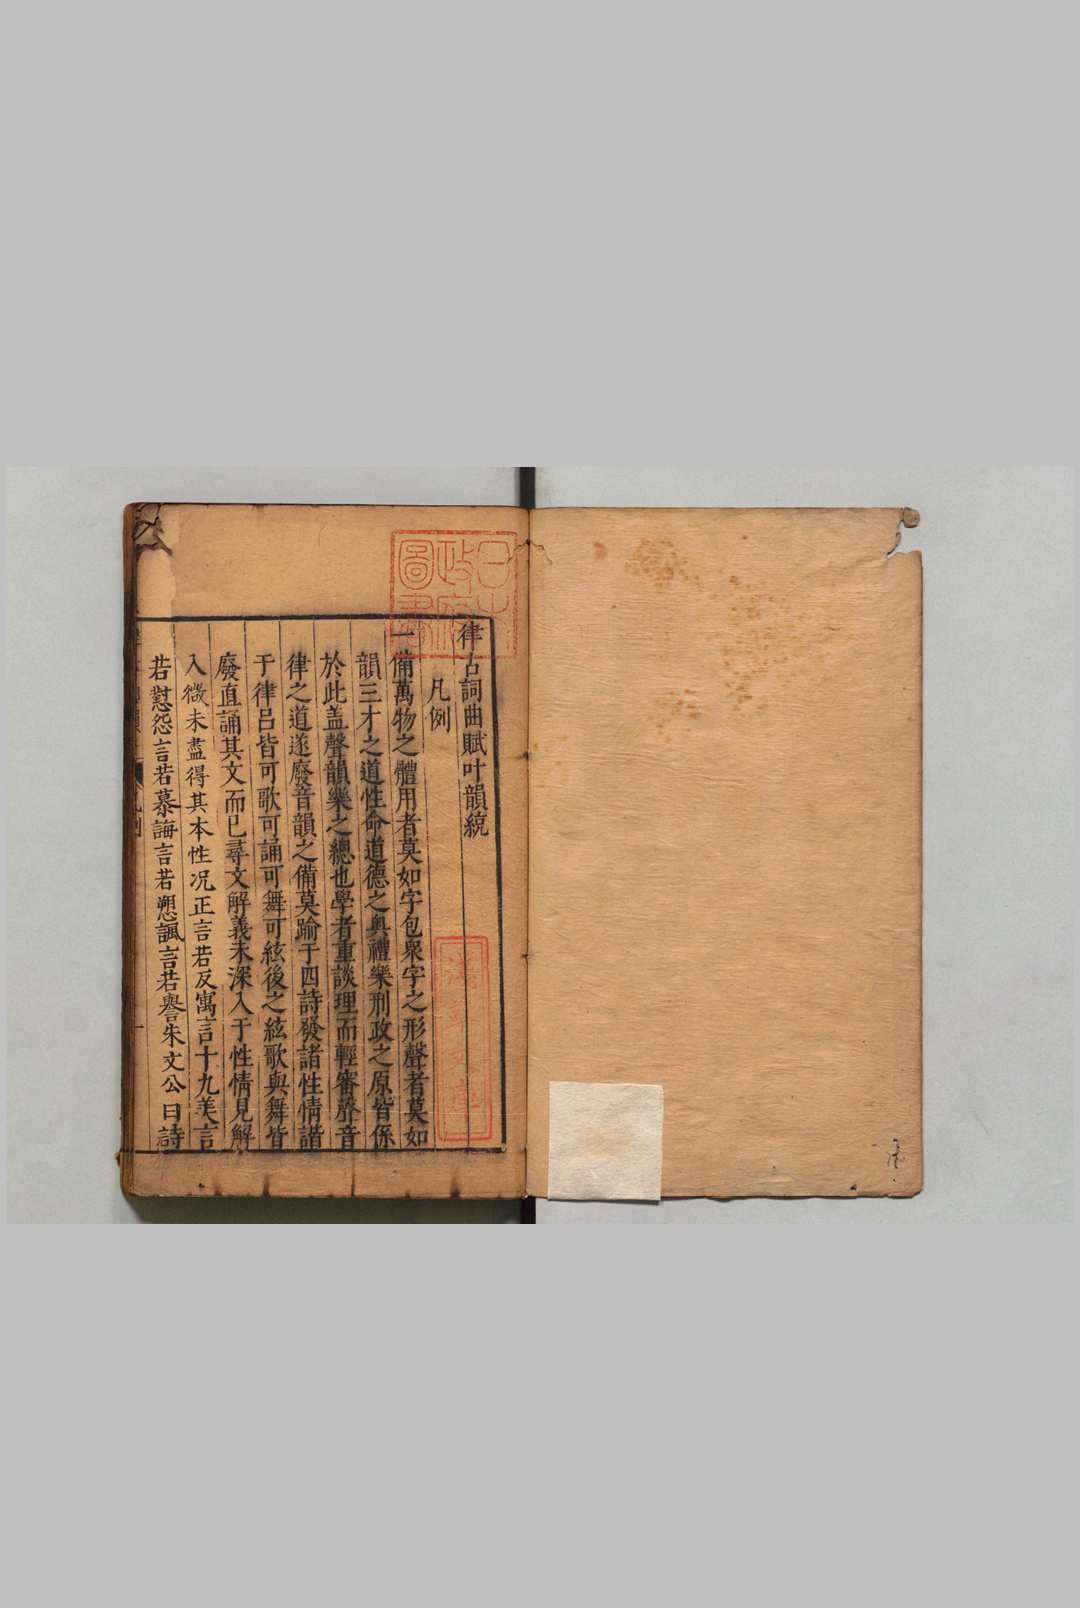 律古詞曲賦叶韻統
凡例
一備萬物之體用者莫如字包衆字之形聲者莫如
韻三才之道性命道德之奧禮樂刑政之原皆係
於此盖聲韻樂之總也學者重談理而輕審聲音
律之道遂廢音韻之備莫踰于四詩發諸性情諧
于律呂皆可歌可誦可舞可絃後之絃歌與舞皆
廢直誦其文而已尋文解義未深入于性情見解
入微未盡得其本性况正言若反寓言十九美言
若懟怨言若慕誨言若愬諷言若譽朱文公曰詩